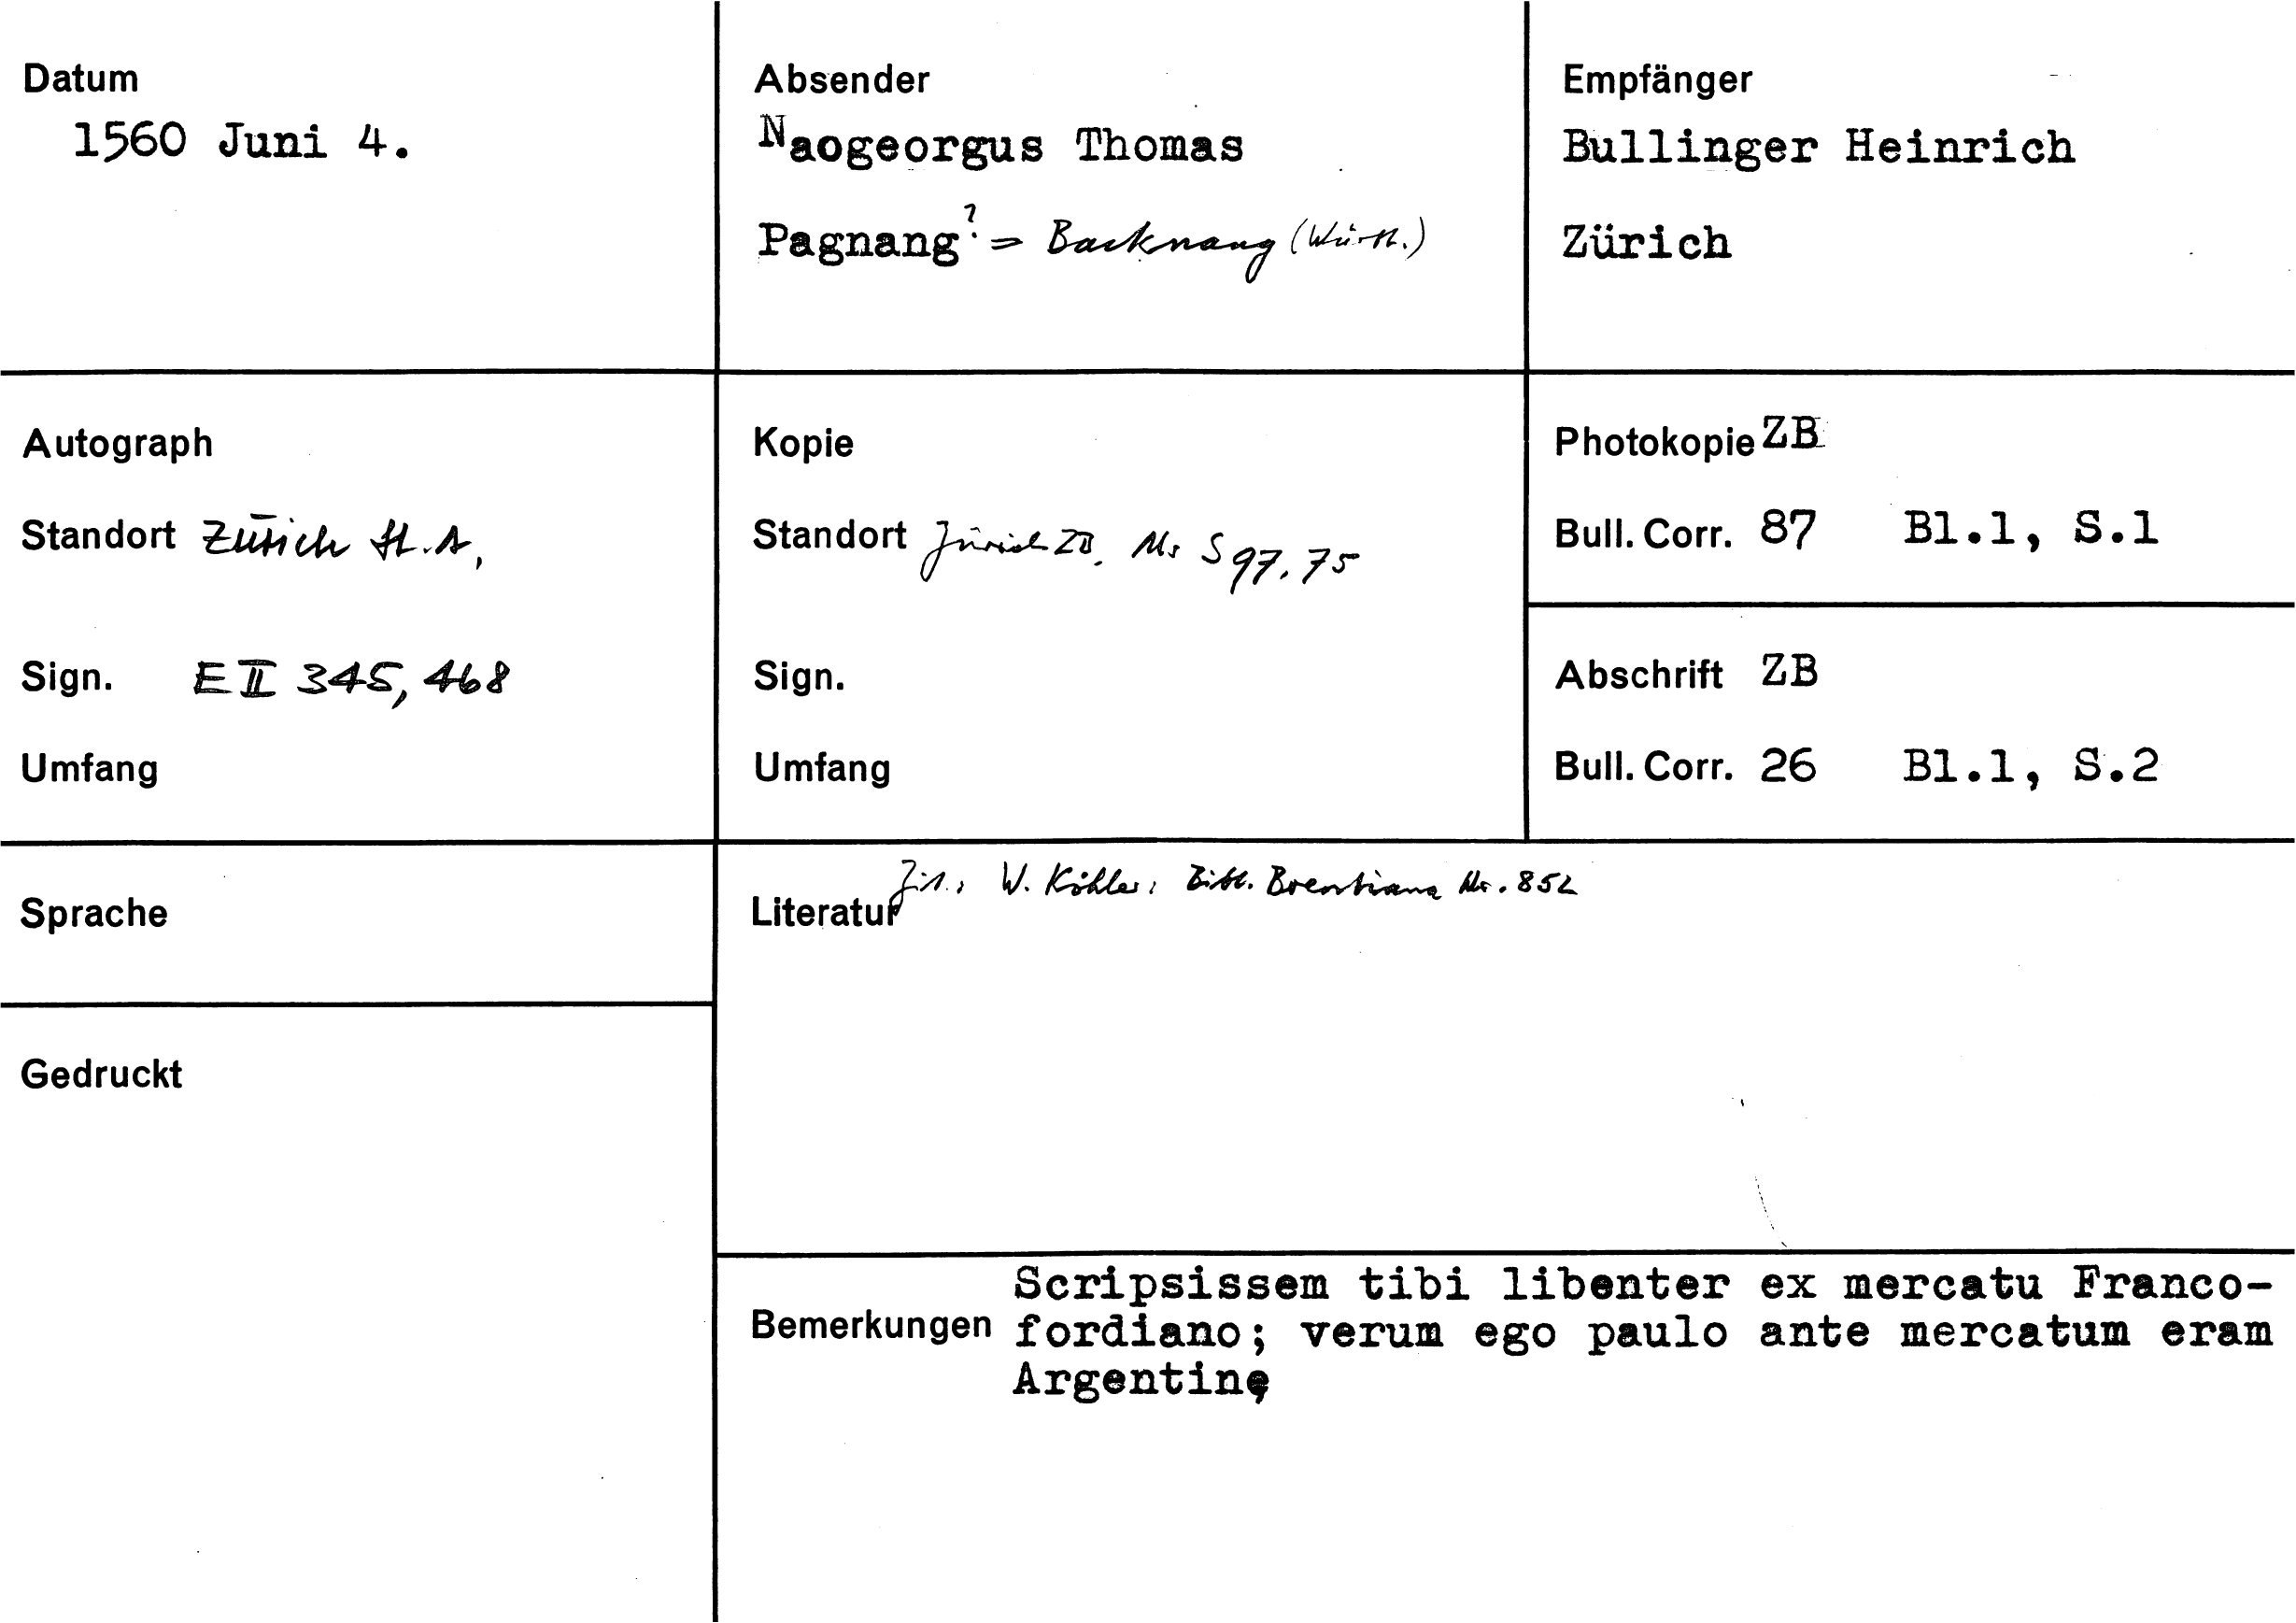 Datum
1560 Juni 4.
Absender
Naogeorgus Thomas
Pagnang ? = Backnang (Württ.)
Empfänger
Bullinger Heinrich
Zürich
Autograph
Standort Zürich St.A,
Sign. E II 345, 468
Umfang
Kopie
Standort Zürich ZB. Ms S 97, 75
Sign.
Umfang
Photokopie ZB
Bull. Corr. 87 Bl.1, S.1
Abschrift ZB
Bull. Corr. 26 Bl.1, S.2
Sprache
Gedruckt
Literatur Zit.: W. Köhler: Bibl. Brentiana Nr. 852
Bemerkungen
Scripsissem tibi libenter ex mercatu Franco-
fordiano; verum ego paulo ante mercatum eram
Argentinę